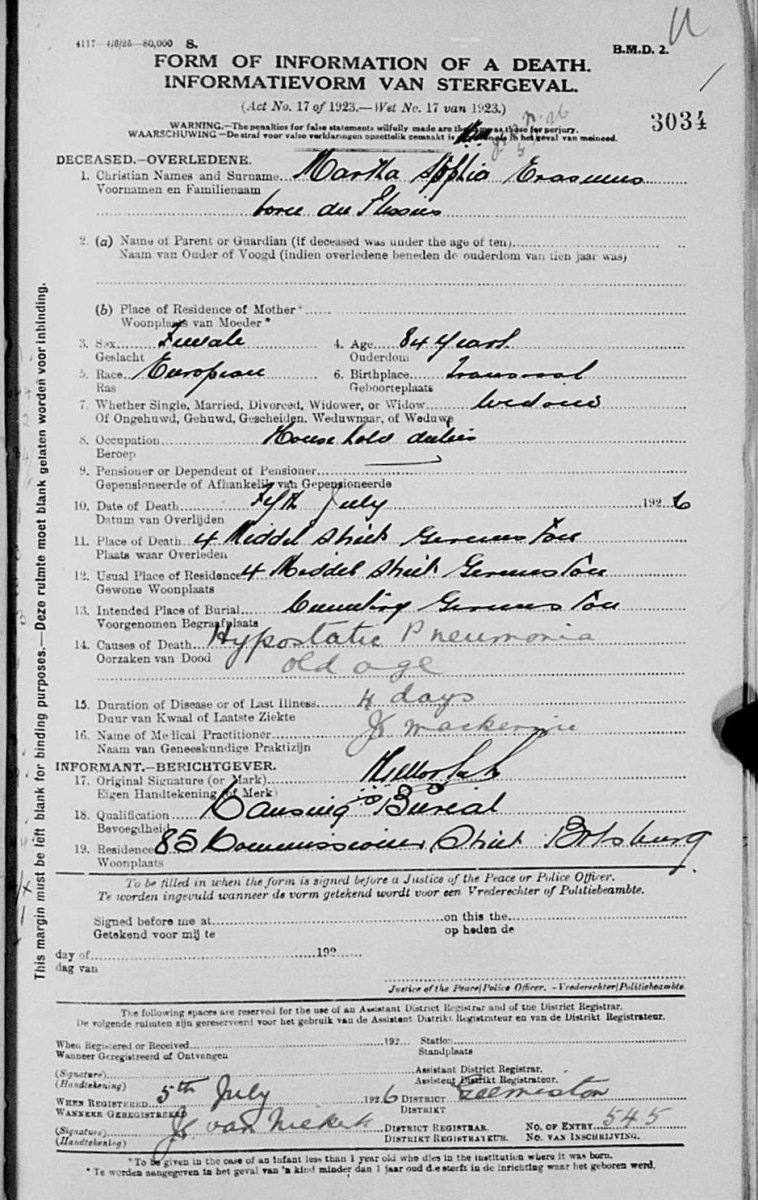 4117—4/8/25—80,000 S.
B.M.D. 2.
FORM OF INFORMATION OF A DEATH.
INFORMATIEVORM VAN STERFGEVAL.
(Act No. 17 of 1923.—Wet No. 17 van 1923.)
3034
WARNING.—The penalties for false statements wilfully made are the same as those for perjury.
WAARSCHUWING.—De straf voor valse verklaringen opzettelik gemaakt is in het geval van meineed.
DECEASED.—OVERLEDENE.
1. Christian Names and Surname Martha Sophia Erasmus
Voornamen en Familienaam
born du Plessis
2. (a) Name of Parent or Guardian (if deceased was under the age of ten)
Naam van Ouder of Voogd (indien overledene beneden de ouderdom van tien jaar was)
(b) Place of Residence of Mother*
Woonplaats van Moeder*
3. Sex Female 4. Age 84 years
Geslacht Ouderdom
5. Race European 6. Birthplace Transvaal
Ras Geboorteplaats
7. Whether Single, Married, Divorced, Widower, or Widow Widow
Of Ongehuwd, Gehuwd, Gescheiden, Weduwnaar, of Weduwe
8. Occupation House hold duties
Beroep
9. Pensioner or Dependent of Pensioner
Gepensioneerde of Afhankelik van Gepensioneerde
10. Date of Death Fifth July 1926
Datum van Overlijden
11. Place of Death 4 Middel Street Germiston
Plaats waar Overleden
12. Usual Place of Residence 4 Middel Street Germiston
Gewone Woonplaats
13. Intended Place of Burial Cemetery Germiston
Voorgenomen Begraafplaats
14. Causes of Death Hypostatic Pneumonia
Oorzaken van Dood old age
15. Duration of Disease or of Last Illness 4 days
Duur van Kwaal of Laatste Ziekte
16. Name of Medical Practitioner Mackenzie
Naam van Geneeskundige Praktizijn
INFORMANT.—BERICHTGEVER.
17. Original Signature (or Mark)
Eigen Handtekening (of Merk)
18. Qualification Causing Burial
Bevoegdheid
19. Residence 85 Commissioner Street Boksburg.
Woonplaats
To be filled in when the form is signed before a Justice of the Peace or Police Officer.
Te worden ingevuld wanneer de vorm getekend wordt voor een Vrederechter of Politiebeambte.
Signed before me at on this the
Getekend voor mij te op heden de
day of 192
dag van
Justice of the Peace/Police Officer.—Vrederechter/Politiebeambte.
The following spaces are reserved for the use of an Assistant District Registrar and of the District Registrar.
De volgende ruimten zijn gereserveerd voor het gebruik van de Assistent Distrikt Registrateur en van de Distrikt Registrateur.
When Registered or Received 192 Station
Wanneer Geregistreerd of Ontvangen Standplaats
(Signature) Assistant District Registrar.
(Handtekening) Assistent Distrikt Registrateur.
WHEN REGISTERED 5th July 1926 DISTRICT Germiston
WANNEER GEREGISTREERD DISTRIKT
(Signature) van Niekerk DISTRICT REGISTRAR. NO. OF ENTRY 545
(Handtekening) DISTRIKT REGISTRATEUR. NO. VAN INSCHRIJVING.
*To be given in the case of an infant less than 1 year old who dies in the institution where it was born.
*Te worden aangegeven in het geval van 'n kind minder dan 1 jaar oud die sterft in de inrichting waar het geboren werd.
This margin must be left blank for binding purposes.—Deze ruimte moet blank gelaten worden voor inbinding.